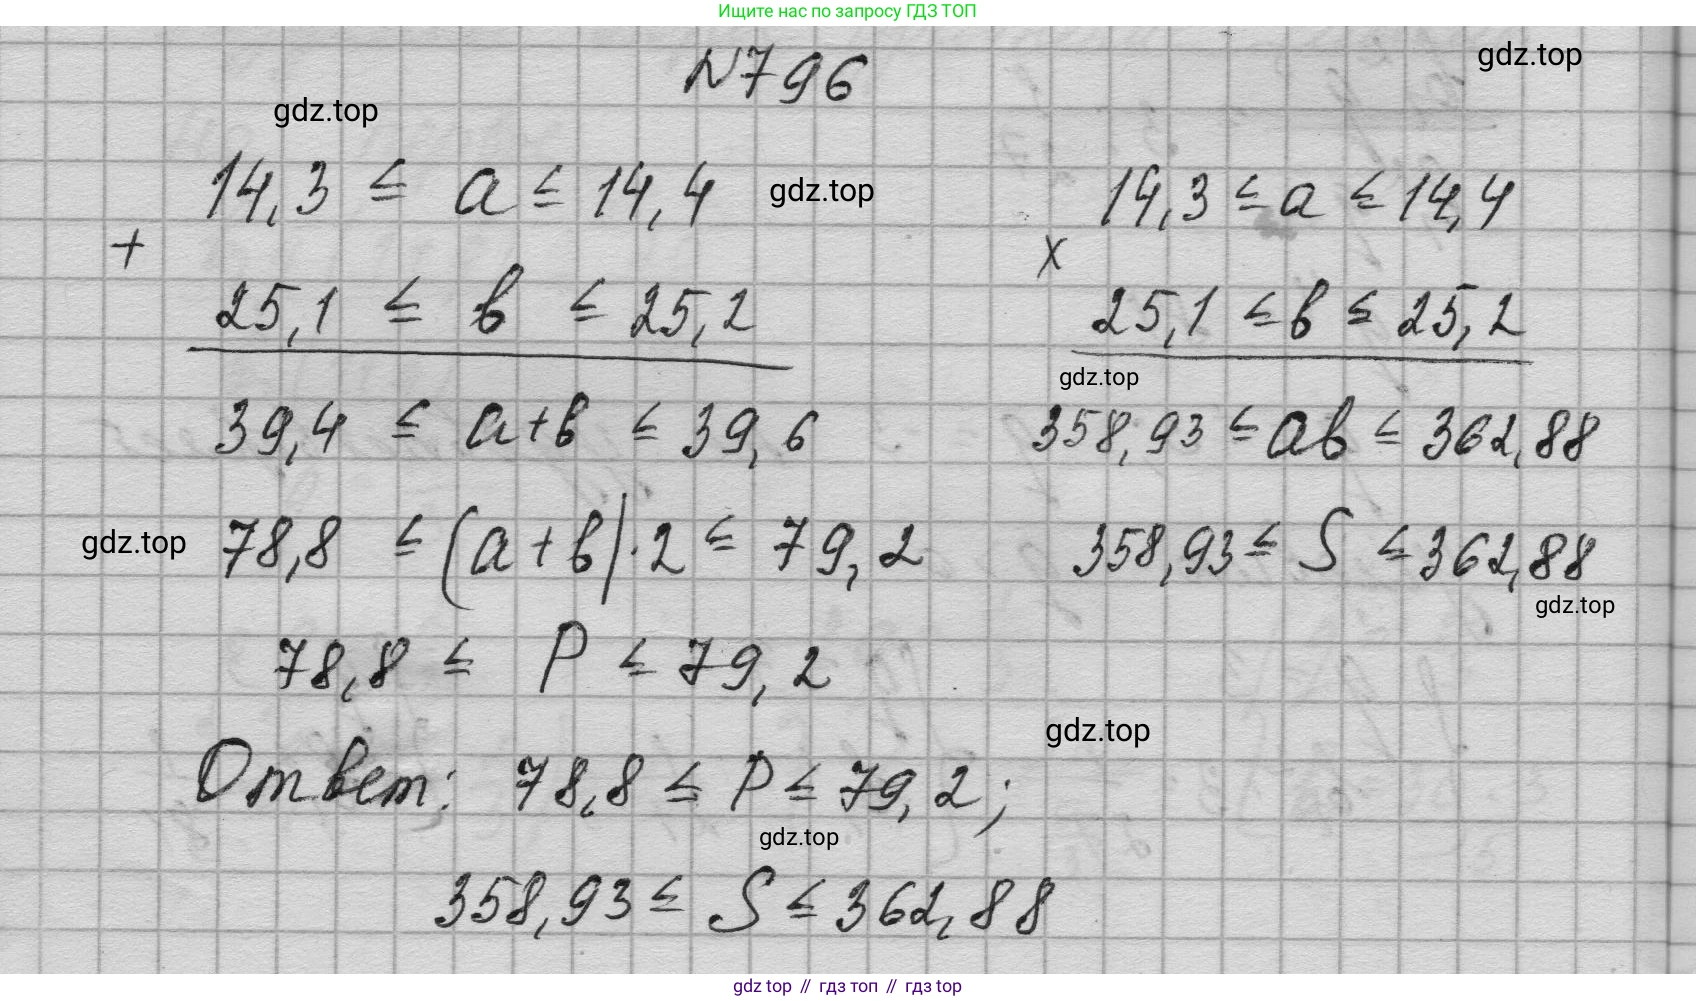 Ищите нас по запросу ГДЗ ТОП
N796
gdz.top
gdz.top
14,3 ≤ a ≤ 14,4
gdz.top
+
25,1 ≤ b ≤ 25,2
39,4 ≤ a+b ≤ 39,6
gdz.top
78,8 ≤ (a+b)·2 ≤ 79,2
78,8 ≤ P ≤ 79,2
14,3 ≤ a ≤ 14,4
x
25,1 ≤ b ≤ 25,2
gdz.top
358,93 ≤ ab ≤ 362,88
358,93 ≤ S ≤ 362,88
gdz.top
gdz.top
Ответ: 78,8 ≤ P ≤ 79,2;
gdz.top
358,93 ≤ S ≤ 362,88
gdz top // гдз топ // гдз top